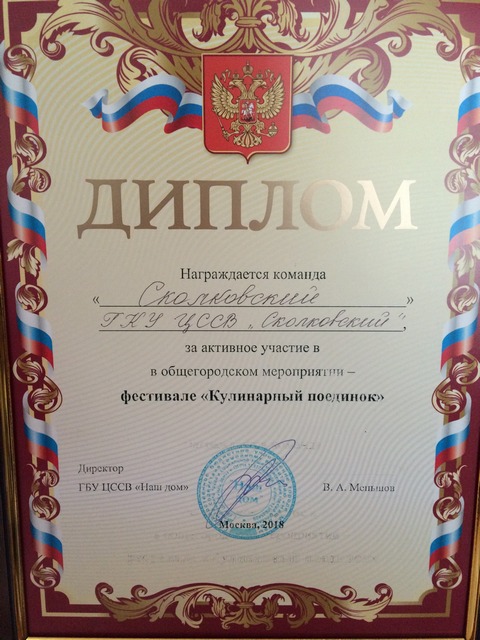 ДИПЛОМ
Награждается команда
« Сколковский »
ГКУ ЦССВ „Сколковский",
за активное участие в
в общегородском мероприятии –
фестивале «Кулинарный поединок»
Директор
ГБУ ЦССВ «Наш дом»
В. А. Меньшов
Москва, 2018